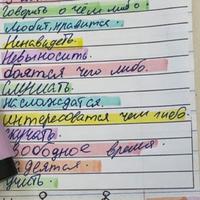 Говорить о чём либо.
Любит, нравится.
Ненавидеть.
Невыносить.
боятся чего либо.
Слушать.
наслождатся.
Интересоватся чем либо.
скучать.
свободное время.
надеятся.
учить.